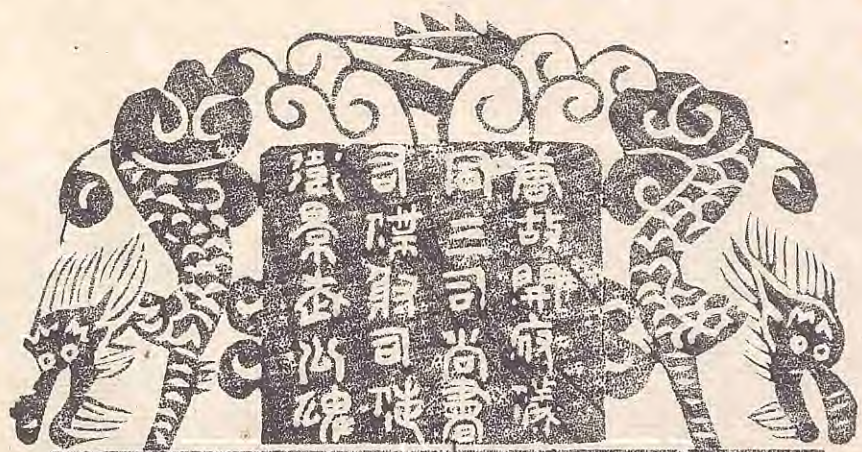 唐故開府儀
同三司尚書
右僕射司徒
衛景武公碑